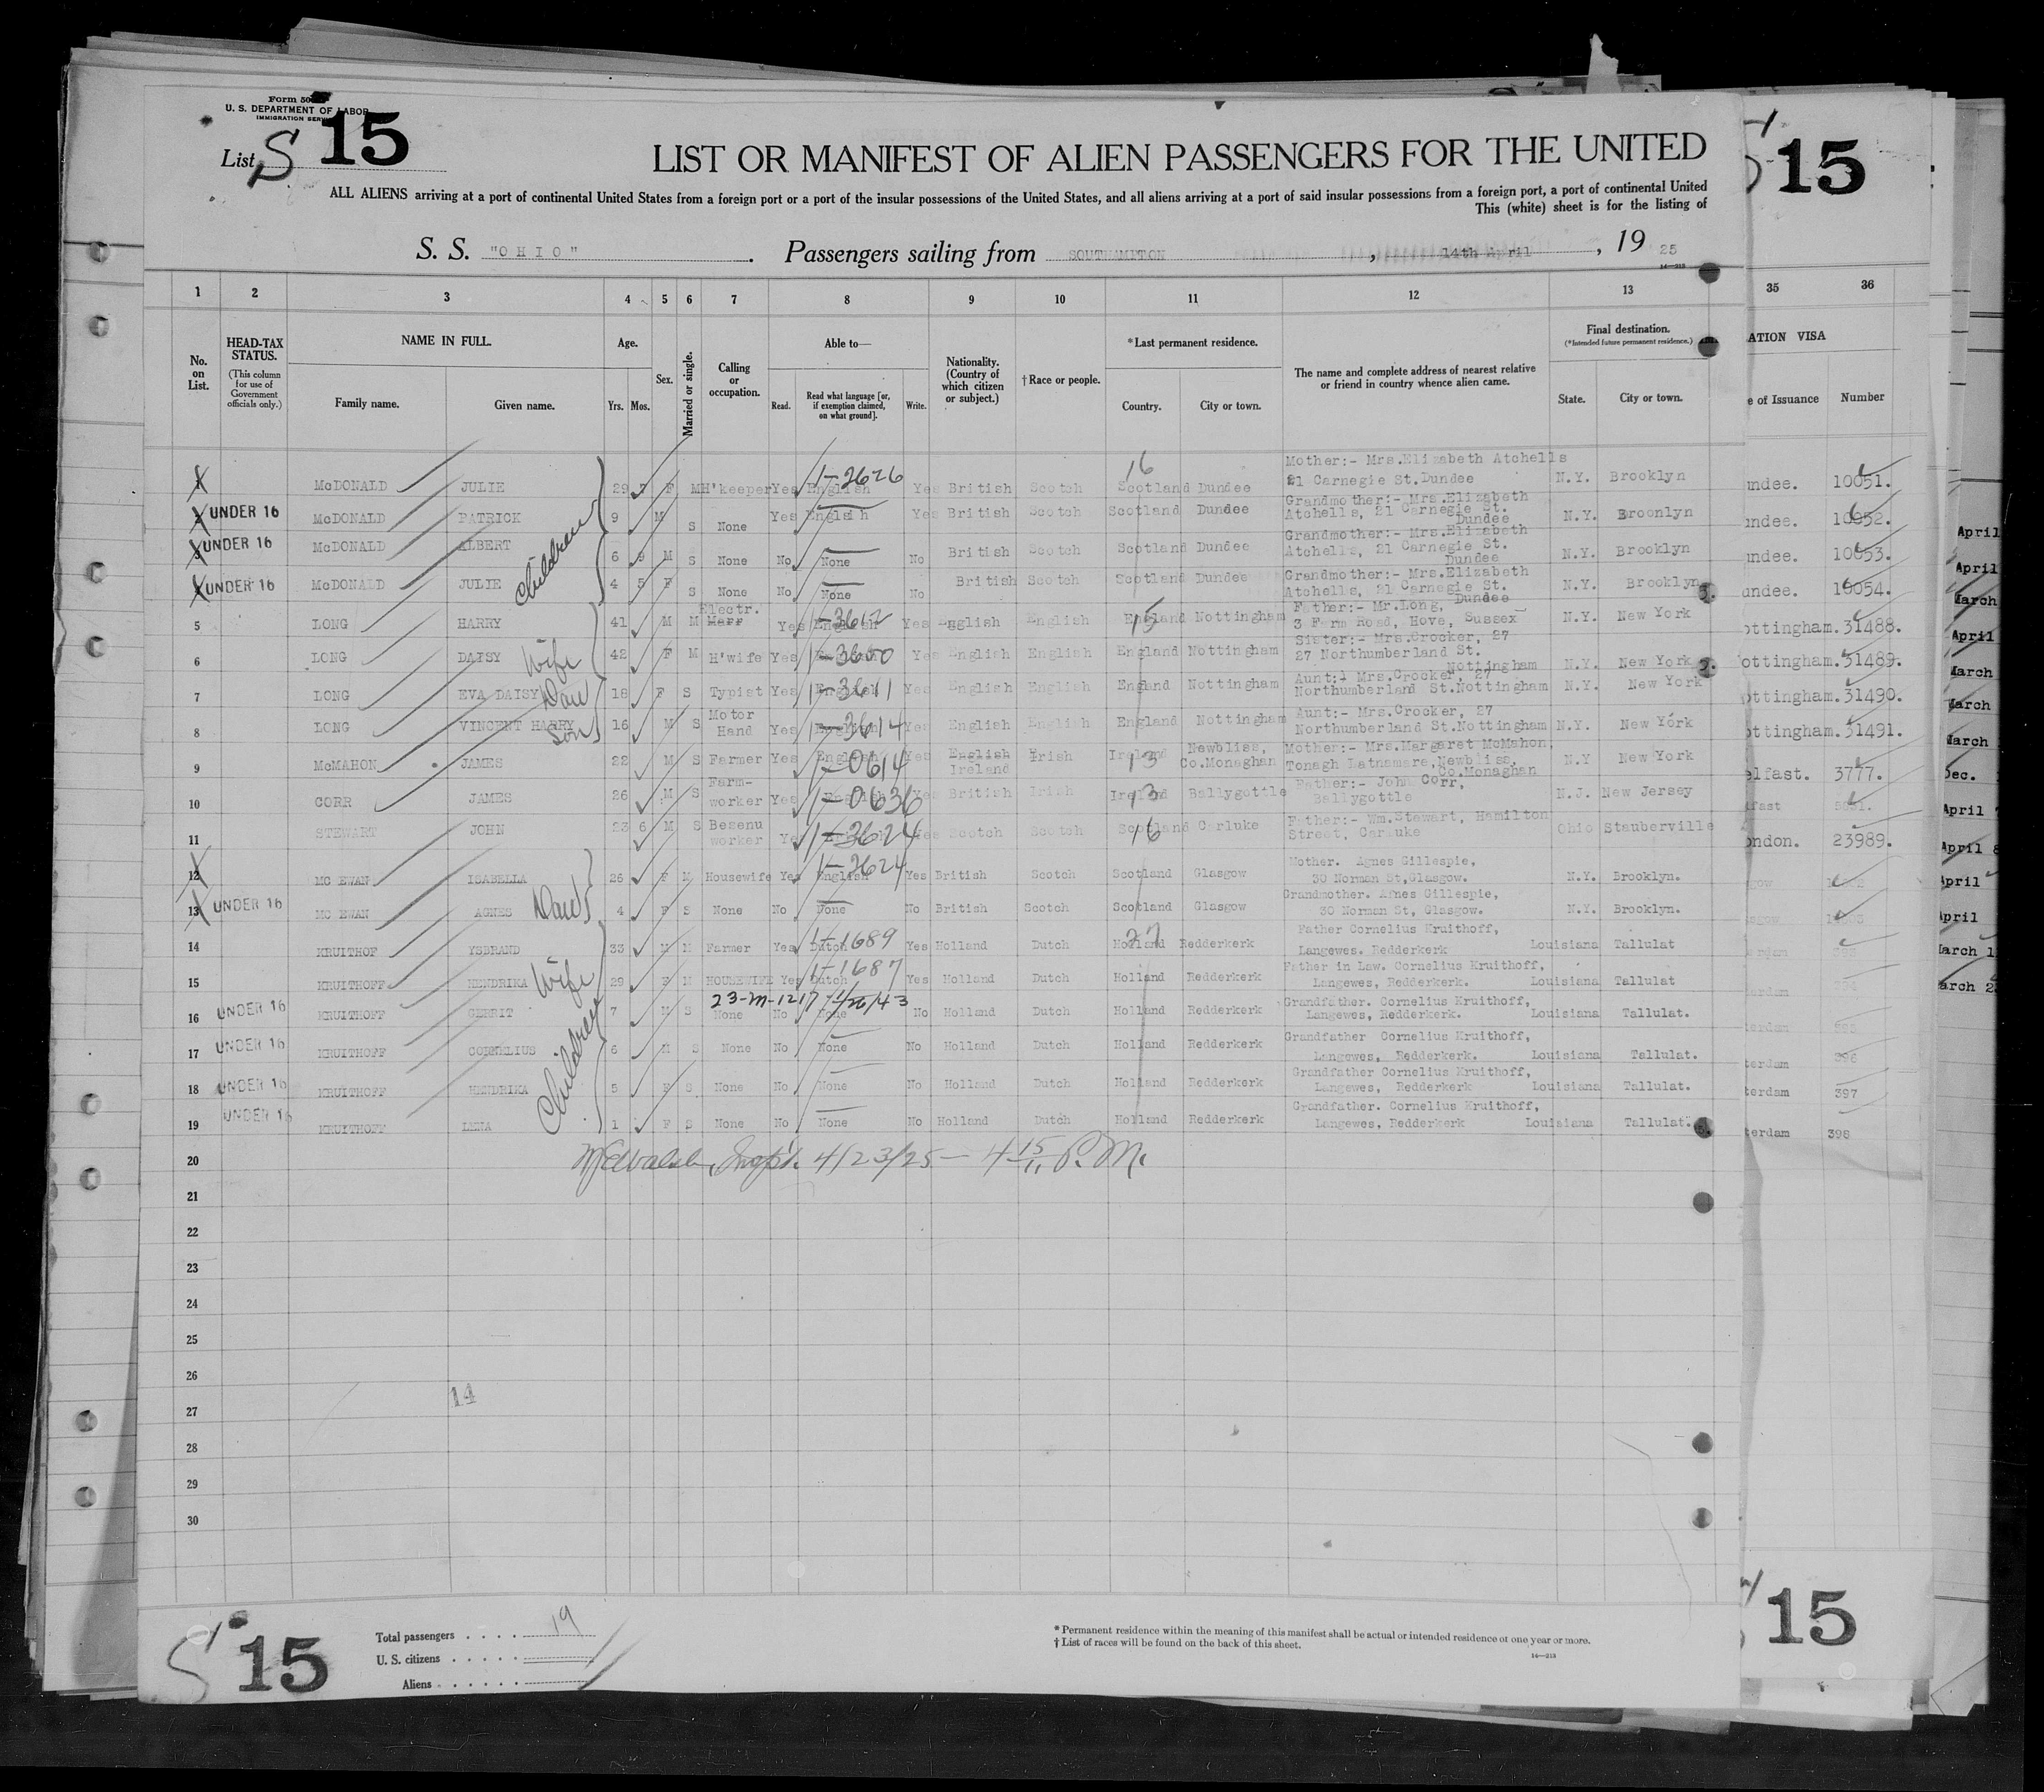 Form 50
U. S. DEPARTMENT OF LABOR
IMMIGRATION SERV
List S 15
LIST OR MANIFEST OF ALIEN PASSENGERS FOR THE UNITED
ALL ALIENS arriving at a port of continental United States from a foreign port or a port of the insular possessions of the United States, and all aliens arriving at a port of said insular possessions from a foreign port, a port of continental United
This (white) sheet is for the listing of
S. S. "OHIO". Passengers sailing from SOUTHAMPTON, 14th April, 19 25
14—213
15
1 2 3 4 5 6 7 8 9 10 11 12 13 35 36
No. on List.
HEAD-TAX STATUS.
(This column for use of Government officials only.)
NAME IN FULL.
Family name. Given name.
Age.
Yrs. Mos.
Sex.
Married or single.
Calling or occupation.
Able to—
Read. Read what language [or, if exemption claimed, on what ground]. Write.
Nationality. (Country of which citizen or subject.)
†Race or people.
*Last permanent residence.
Country. City or town.
The name and complete address of nearest relative or friend in country whence alien came.
Final destination.
(*Intended future permanent residence.)
State. City or town.
ATION VISA
e of Issuance Number
1 McDONALD JULIE 29 F M H'keeper Yes English 1-2626 Yes British Scotch Scotland 16 Dundee Mother:- Mrs.Elizabeth Atchells 21 Carnegie St.Dundee N.Y. Brooklyn undee. 10051.
2 UNDER 16 McDONALD PATRICK 9 M S None Yes English Yes British Scotch Scotland Dundee Grandmother:- Mrs.Elizabeth Atchells, 21 Carnegie St. Dundee N.Y. Broonlyn undee. 10052.
3 UNDER 16 McDONALD ALBERT 6 9 M S None No None No British Scotch Scotland Dundee Grandmother:- Mrs.Elizabeth Atchells, 21 Carnegie St. Dundee N.Y. Brooklyn undee. 10053.
4 UNDER 16 McDONALD JULIE Children 4 5 F S None No None No British Scotch Scotland Dundee Grandmother:- Mrs.Elizabeth Atchells, 21 Carnegie St. Dundee N.Y. Brooklyn undee. 10054.
5 LONG HARRY 41 M M Electr. Yes English 1-3612 Yes English English England 15 Nottingham Father:- Mr.Long, 3 Farm Road, Hove, Sussex N.Y. New York ottingham. 31488.
6 LONG DAISY Wife 42 F M H'wife Yes 1-3650 Yes English English England Nottingham Sister:- Mrs.Crocker, 27 27 Northumberland St. Nottingham N.Y. New York ottingham. 31489.
7 LONG EVA DAISY Dau 18 F S Typist Yes English 1-3611 Yes English English England Nottingham Aunt:- Mrs.Crocker, 27 Northumberland St.Nottingham N.Y. New York ottingham. 31490.
8 LONG VINCENT HARRY Son 16 M S Motor Hand Yes English 1-3614 Yes English English England Nottingham Aunt:- Mrs.Crocker, 27 Northumberland St.Nottingham N.Y. New York ottingham. 31491.
9 McMAHON JAMES 22 M S Farmer Yes English 1-0614 Yes English Ireland Irish Ireland 13 Newbliss, Co.Monaghan Mother:- Mrs.Margaret McMahon, Tonagh Latnamare, Newbliss, Co.Monaghan N.Y New York elfast. 3777.
10 CORR JAMES 26 M S Farm-worker Yes 1-0636 Yes British Irish Ireland 13 Ballygottle Father:- John Corr, Ballygottle N.J. New Jersey fast
11 STEWART JOHN 23 6 M S Besenu worker Yes 1-3624 Yes Scotch Scotch Scotland 16 Carluke Father:- Wm.Stewart, Hamilton Street, Carluke Ohio Stauberville ondon. 23989.
12 MC EWAN ISABELLA 26 F M Housewife Yes English 1-2624 Yes British Scotch Scotland Glasgow Mother. Agnes Gillespie, 30 Norman St,Glasgow. N.Y. Brooklyn. gow
13 UNDER 16 MC EWAN AGNES Dau 4 F S None No None No British Scotch Scotland Glasgow Grandmother. Agnes Gillespie, 30 Norman St, Glasgow. N.Y. Brooklyn. sgow
14 KRUITHOF YSBRAND 33 M M Farmer Yes Dutch 1-1689 Yes Holland Dutch Holland 27 Redderkerk Father Cornelius Kruithoff, Langewes. Redderkerk Louisiana Tallulat erdam
15 KRUITHOFF HENDRIKA Wife 29 F M HOUSEWIFE Yes Dutch 1-1687 Yes Holland Dutch Holland Redderkerk Father in Law. Cornelius Kruithoff, Langewes, Redderkerk. Louisiana Tallulat terdam
23-M-1217
16 UNDER 16 KRUITHOFF GERRIT 7 M S None No None No Holland Dutch Holland Redderkerk Grandfather. Cornelius Kruithoff, Langewes, Redderkerk. Louisiana Tallulat. terdam
17 UNDER 16 KRUITHOFF CORNELIUS 6 M S None No None No Holland Dutch Holland Redderkerk Grandfather Cornelius Kruithoff, Langewes, Redderkerk. Louisiana Tallulat. terdam 396
18 UNDER 16 KRUITHOFF HENDRIKA Children 5 F S None No None No Holland Dutch Holland Redderkerk Grandfather Cornelius Kruithoff, Langewes, Redderkerk Louisiana Tallulat. terdam 397
19 UNDER 16 KRUITHOFF LENA 1 F S None No None No Holland Dutch Holland Redderkerk Grandfather. Cornelius Kruithoff, Langewes, Redderkerk Louisiana Tallulat. terdam 398
20 Insp't. 4/23/25 — 4 15 P. M.
21
22
23
24
25
26
14
27
28
29
30
April
April
March
April
March
March
March
Dec.
April 7
April 8
April
April
March 1
March 2
S 15
Total passengers . . . . 19
U. S. citizens . . . . .
Aliens . . . . . .
* Permanent residence within the meaning of this manifest shall be actual or intended residence of one year or more.
† List of races will be found on the back of this sheet.
14—213
15